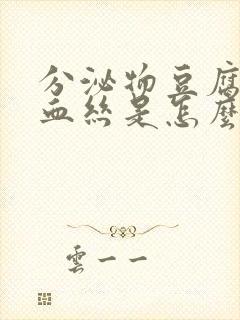 分泌物豆腐
血絲是怎麼
雲一一